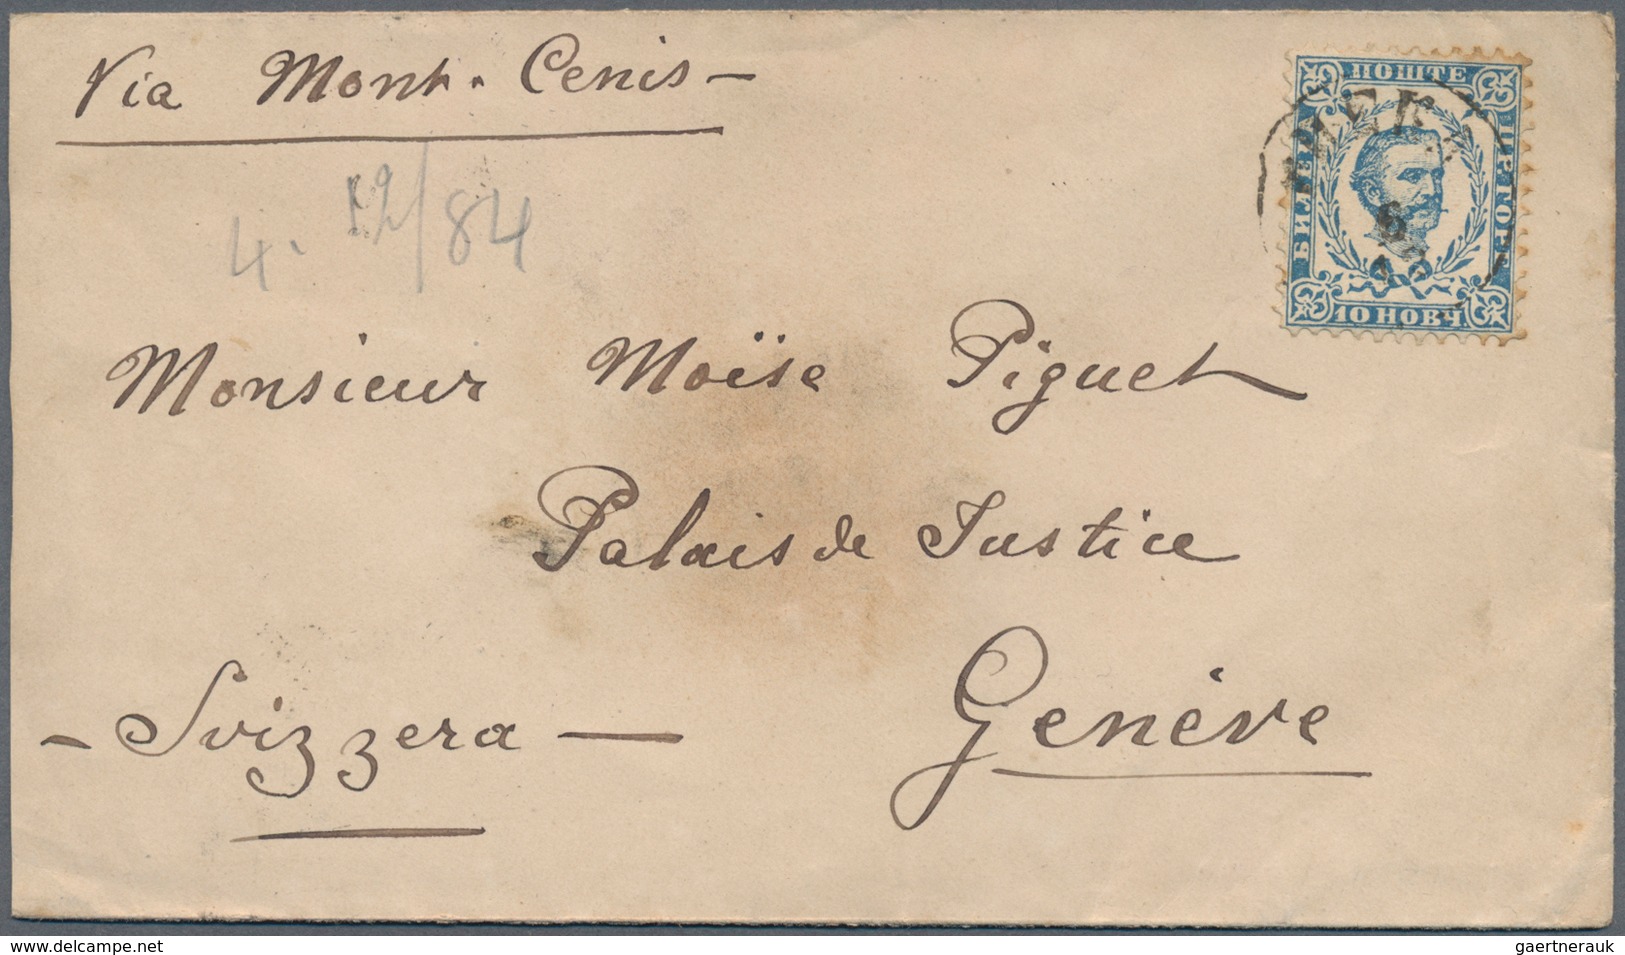 Via Mont. Cenis –
ПОШТЕ
10 НОВЧ
6
4. 12/84
Monsieur Moïse Piguet
Palais de Justice
– Svizzera –
Genève
www.delcampe.net
gaertnerauk